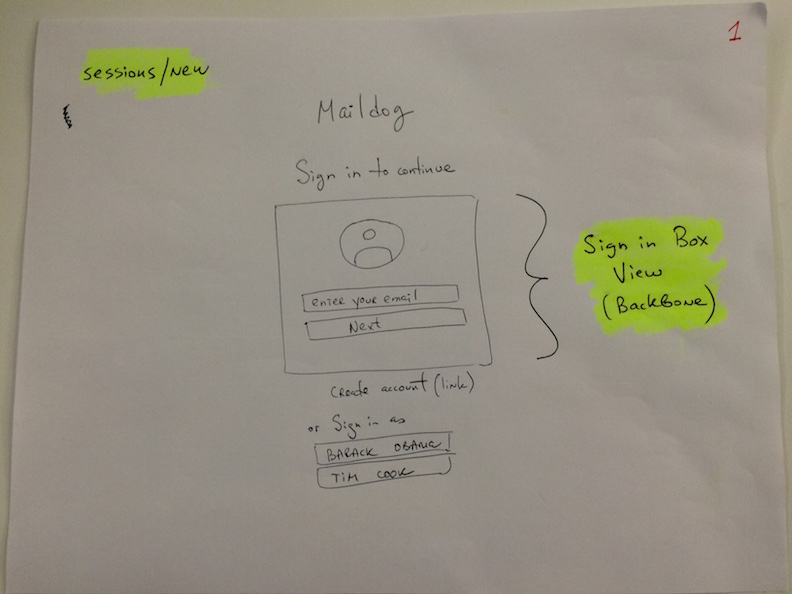 1
sessions/new
Maildog
Sign in to continue
enter your email
Next
Sign in Box
View
(Backbone)
create account (link)
or Sign in as
BARACK OBAMA
TIM COOK